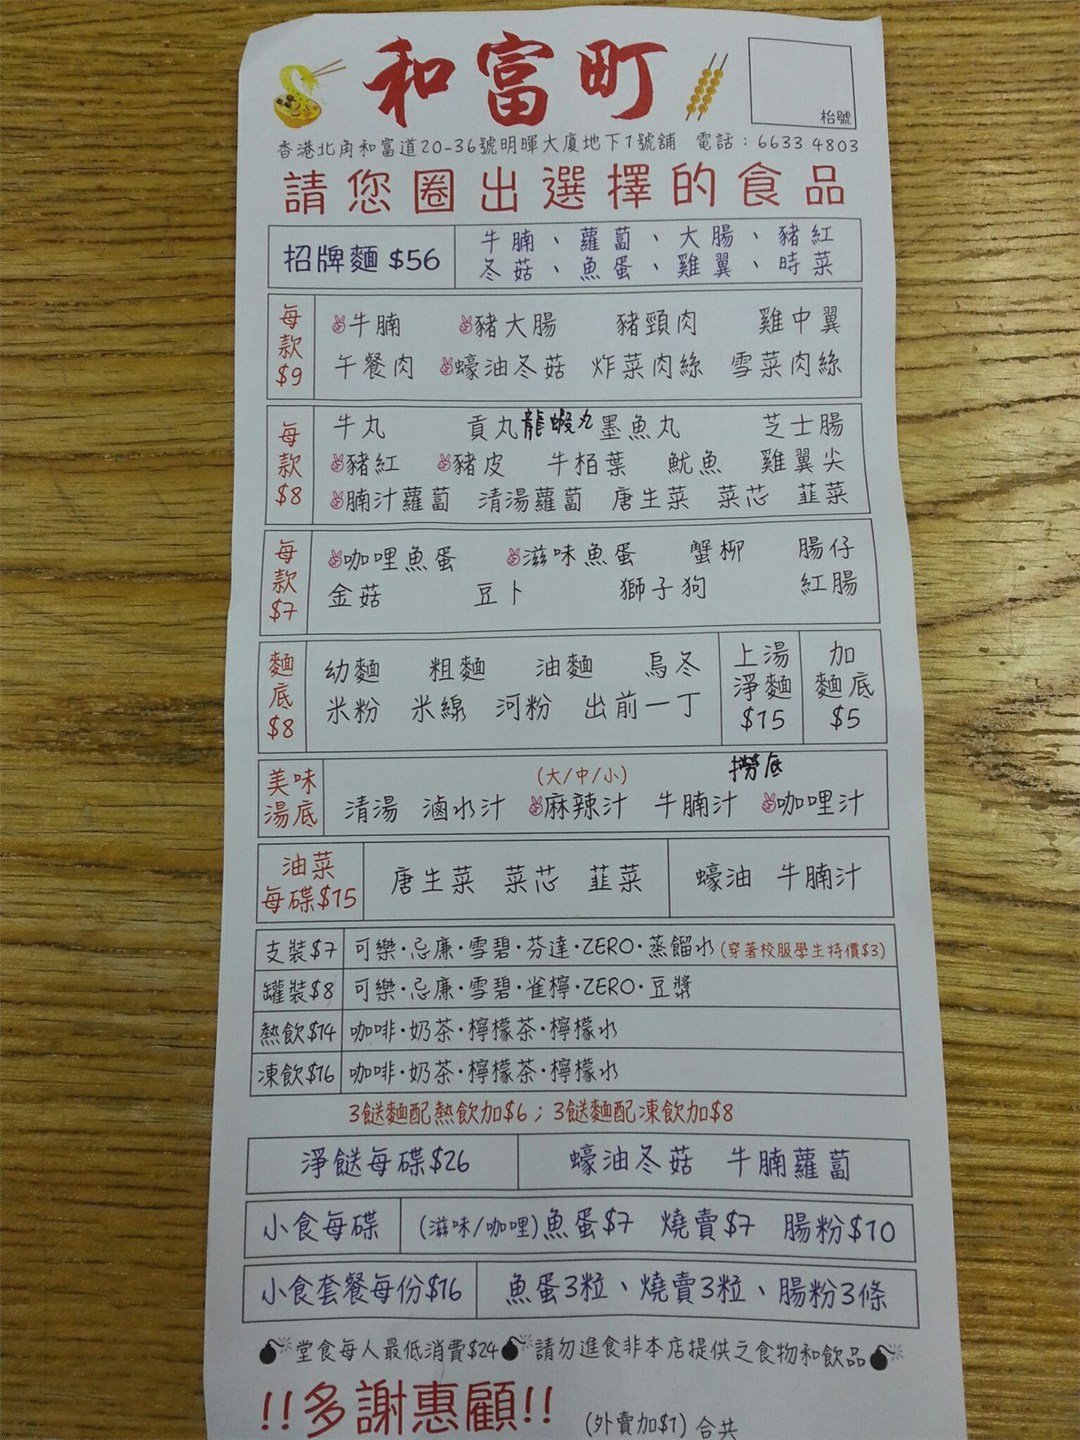 和富町
枱號
香港北角和富道20-36號明暉大廈地下1號舖 電話：6633 4803
請您圈出選擇的食品
招牌麵 $56
牛腩、蘿蔔、大腸、豬紅
冬菇、魚蛋、雞翼、時菜
每款$9
牛腩 豬大腸 豬頸肉 雞中翼
午餐肉 蠔油冬菇 炸菜肉絲 雪菜肉絲
每款$8
牛丸 貢丸 龍蝦丸 墨魚丸 芝士腸
豬紅 豬皮 牛栢葉 魷魚 雞翼尖
腩汁蘿蔔 清湯蘿蔔 唐生菜 菜芯 韮菜
每款$7
咖哩魚蛋 滋味魚蛋 蟹柳 腸仔
金菇 豆卜 獅子狗 紅腸
麵底$8
幼麵 粗麵 油麵 烏冬
米粉 米線 河粉 出前一丁
上湯淨麵$15
加麵底$5
美味湯底
(大/中/小) 撈底
清湯 滷水汁 麻辣汁 牛腩汁 咖哩汁
油菜每碟$15
唐生菜 菜芯 韮菜
蠔油 牛腩汁
支裝$7 可樂·忌廉·雪碧·芬達·ZERO·蒸餾水(穿著校服學生特價$3)
罐裝$8 可樂·忌廉·雪碧·雀檸·ZERO·豆漿
熱飲$14 咖啡·奶茶·檸檬茶·檸檬水
凍飲$16 咖啡·奶茶·檸檬茶·檸檬水
3餸麵配熱飲加$6；3餸麵配凍飲加$8
淨餸每碟$26 蠔油冬菇 牛腩蘿蔔
小食每碟 (滋味/咖哩)魚蛋$7 燒賣$7 腸粉$10
小食套餐每份$16 魚蛋3粒、燒賣3粒、腸粉3條
堂食每人最低消費$24 請勿進食非本店提供之食物和飲品
!!多謝惠顧!! (外賣加$1) 合共